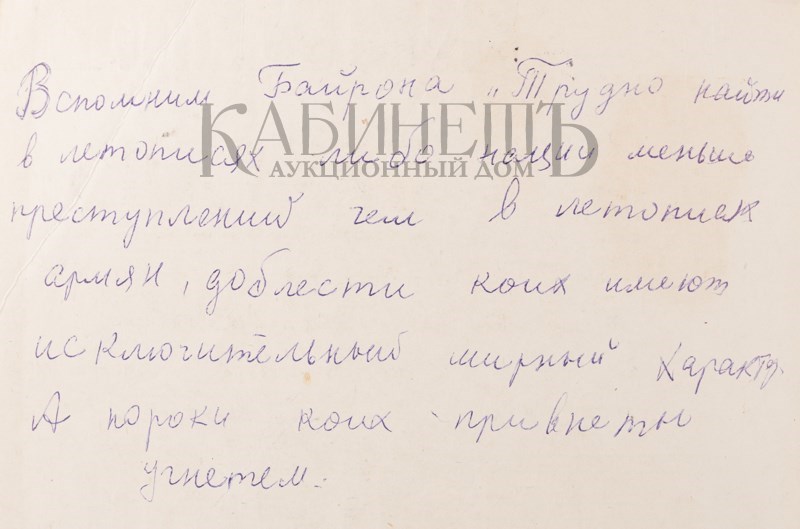 Вспомним Байрона „Трудно найти
КАБИНЕТЪ
АУКЦИОННЫЙ ДОМ
в летописях либо нации меньше
преступлений чем в летописях
армян, доблести коих имеют
исключительный мирный характер.
А пороки коих привнеты
угнетем.